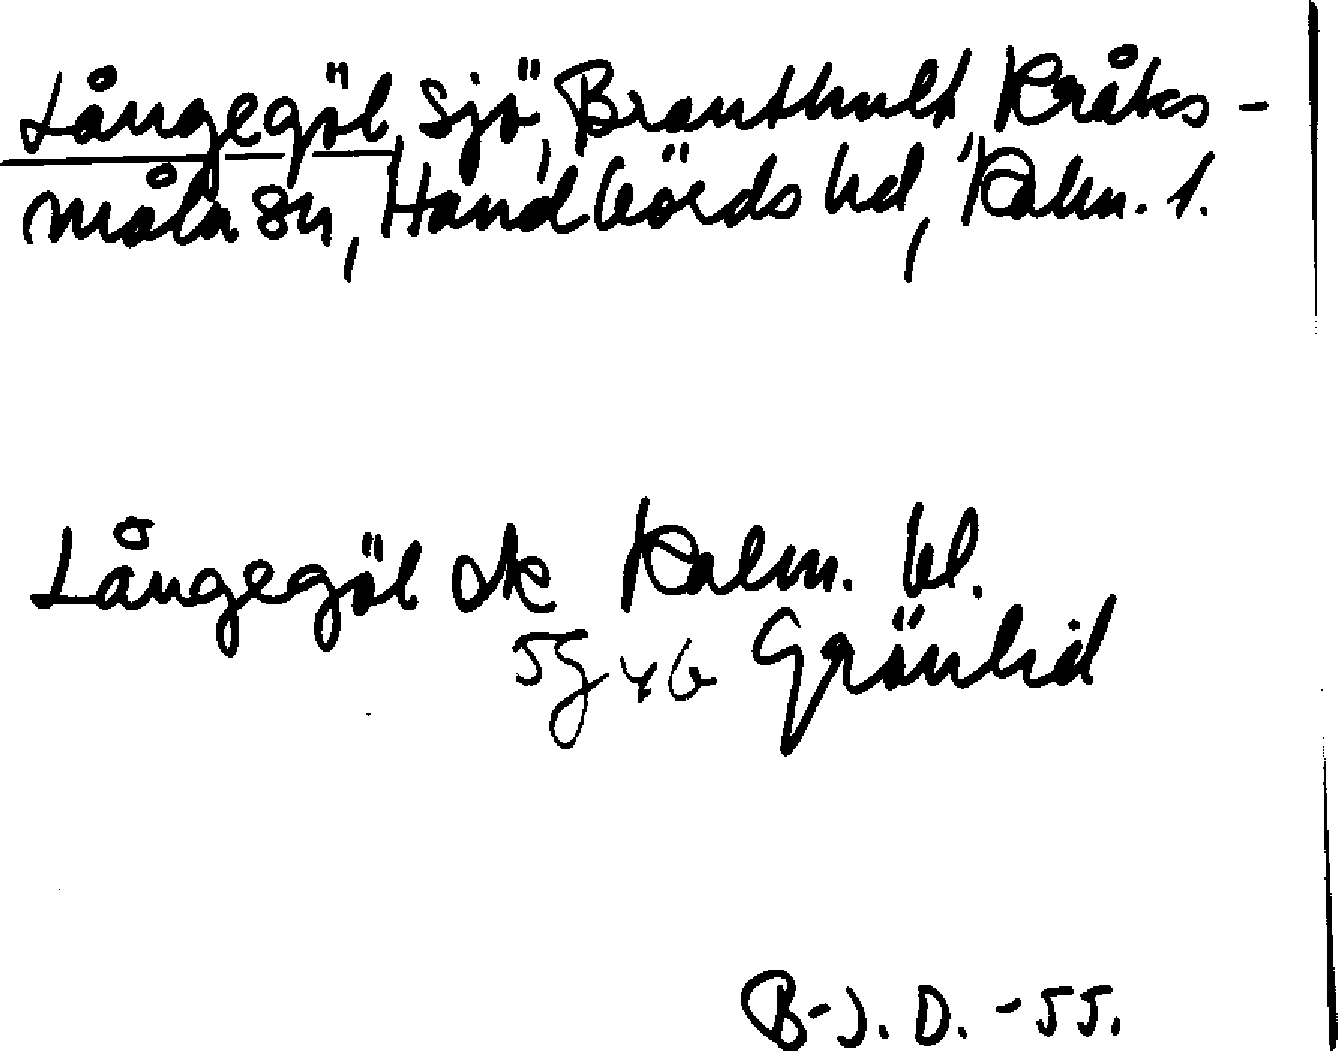 Långegöl, sjö, Branthult, Kråks-
måla sn, Handbörds hd, Kalm. l.
Långegöl ek Kalm. bl.
5G y 6 Grönlid
B-J. D. -55.